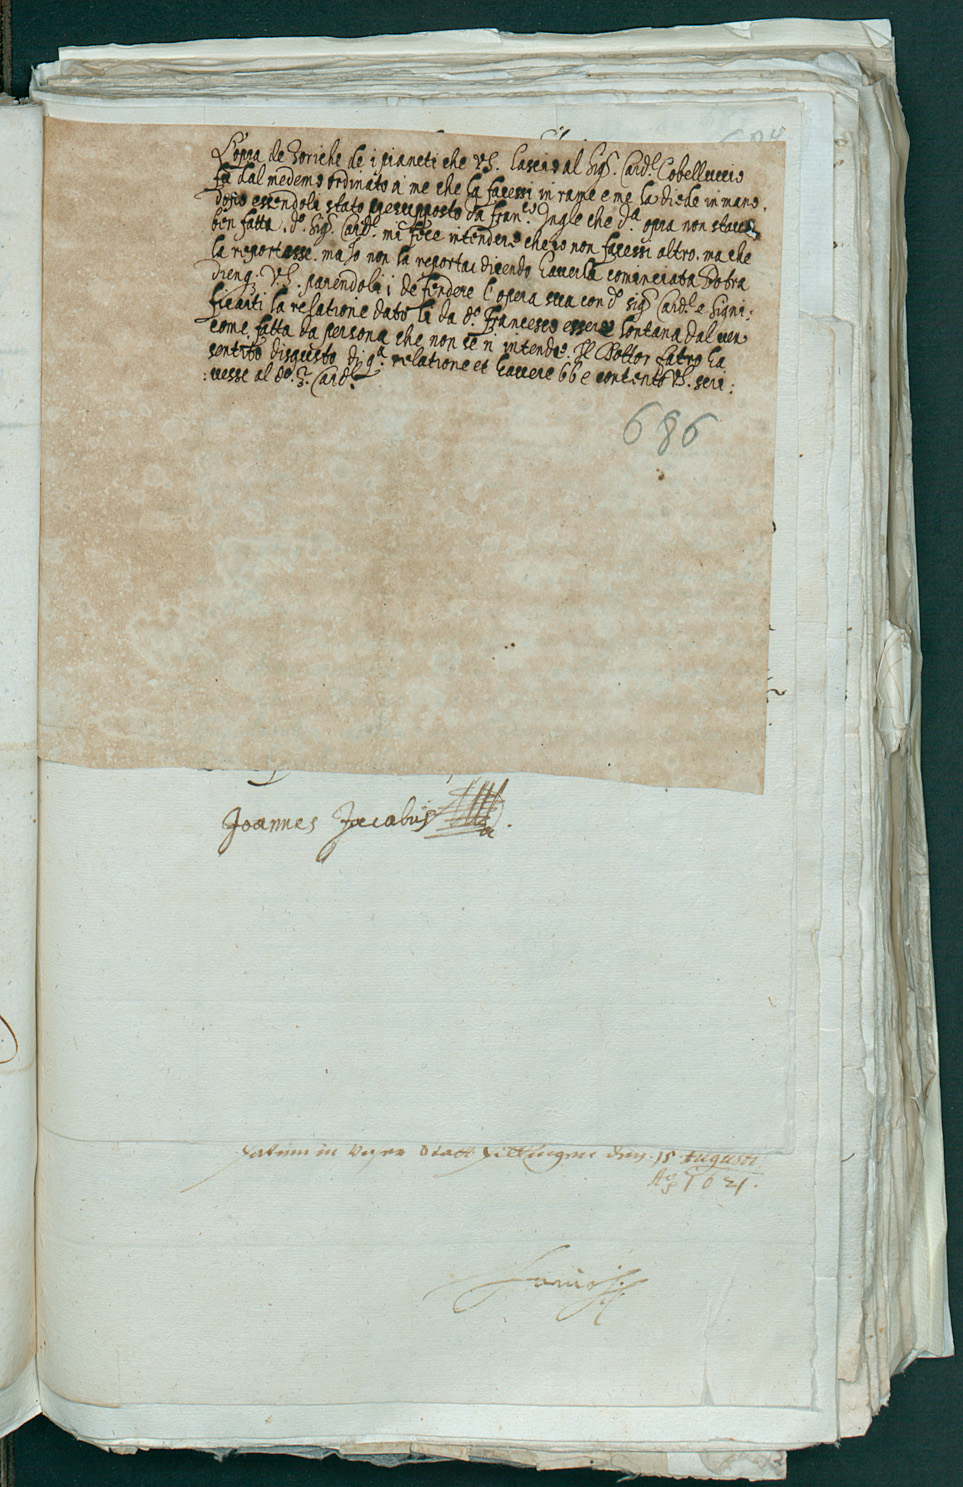 L'opra de Teriche de i pianeti che VS. lascio al Sigr. Cardl. Cobelluccio
fu dal medemo ordinato a me che la facessi in rame e me la diede in mano.
dopo essendoli stato presupposto da Franco. Ingle che da. opra non stava
ben fatta. do. Sigr. Cardl. mi fece intendere che io non facessi altro. ma che
la reportasse. ma io non la reportai dicendo haverla cominciata
VS. parendoli i defendere l'opera sua con do. Sigr Cardl. e signi:
ficarli la relatione dato la da do. Francesco essere lontana dal vero
come fatta da persona che non se n intende. Il Dottor ha
sentito disgusto di qa. relatione et havere contento VS. scri:
:vesse al do. Sr. Cardl.
686
Joannes Jacobus
Datum in Dillingen den. 15 Augusti
Ao 1621.